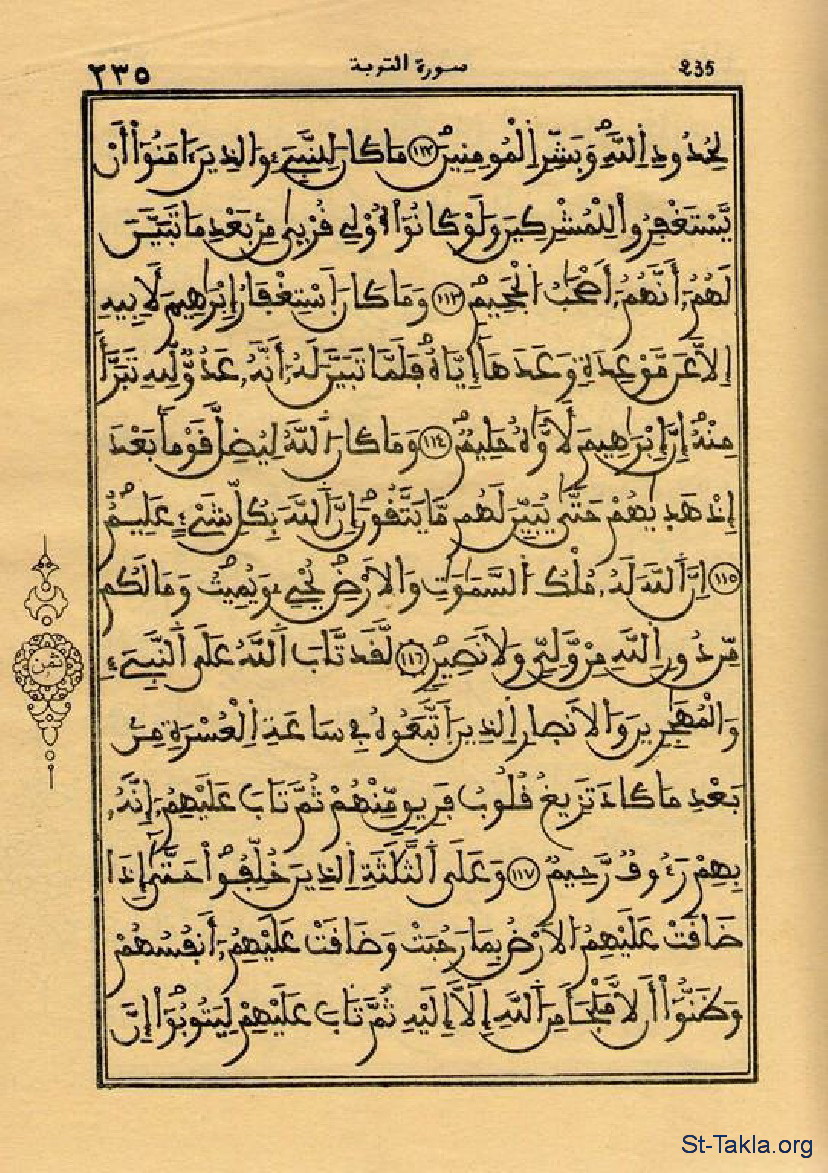 235 سورة التوبة ٢٣٥
لِحُدُودِ اِللَّهِ وَبَشِّرِ اِلْمُومِنِينَ ١١٢ مَا كَانَ لِلنَّبِيءِ وَالذِينَ ءَامَنُوٓاْ أَنْ
يَّسْتَغْفِرُواْ لِلْمُشْرِكِينَ وَلَوْ كَانُوٓاْ أُوْلِي قُرْبىٰ مِنۢ بَعْدِ مَا تَبَيَّنَ
لَهُمُۥٓ أَنَّهُمُۥٓ أَصْحَٰبُ الْجَحِيمِ ١١٣ وَمَا كَانَ اَسْتِغْفَارُ إِبْرَٰهِيمَ لِأَبِيهِ
إِلَّا عَن مَّوْعِدَةٍ وَعَدَهَآ إِيَّاهُ فَلَمَّا تَبَيَّنَ لَهُۥٓ أَنَّهُۥ عَدُوٌّ لِّلهِ تَبَرَّأَ
مِنْهُ إِنَّ إِبْرَٰهِيمَ لَأَوَّٰهٌ حَلِيمٌ ١١٤ وَمَا كَانَ اَللَّهُ لِيُضِلَّ قَوْماً بَعْدَ
إِذْ هَدٜىٰهُمْ حَتَّىٰ يُبَيِّنَ لَهُم مَّا يَتَّقُونَ إِنَّ اَللَّهَ بِكُلِّ شَےْءٍ عَلِيمٌ
١١٥ إِنَّ اَللَّهَ لَهُۥ مُلْكُ اُلسَّمَٰوَٰتِ وَالْأَرْضِ يُحْيِۦ وَيُمِيتُ وَمَا لَكُم
مِّن دُونِ اِللَّهِ مِنْ وَّلِيٍّ وَلَا نَصِيرٍ ١١٦ لَّقَد تَّابَ اَللَّهُ عَلَى اَلنَّبِيٓءِ
وَالْمُهَٰجِرِينَ وَالْأَنصَارِ اِلذِينَ اَتَّبَعُوهُ فِي سَاعَةِ اِلْعُسْرَةِ مِنۢ
بَعْدِ مَا كَادَ تَزِيغُ قُلُوبُ فَرِيقٍ مِّنْهُمْ ثُمَّ تَابَ عَلَيْهِمُۥٓ إِنَّهُۥ
بِهِمْ رَءُوفٌ رَّحِيمٌ ١١٧ وَعَلَى اَلثَّلَٰثَةِ اِلذِينَ خُلِّفُواْ حَتَّىٰٓ إِذَا
ضَاقَتْ عَلَيْهِمُ الْأَرْضُ بِمَا رَحُبَتْ وَضَاقَتْ عَلَيْهِمُۥٓ أَنفُسُهُمْ
وَظَنُّوٓاْ أَن لَّا مَلْجَأَ مِنَ اَللَّهِ إِلَّآ إِلَيْهِ ثُمَّ تَابَ عَلَيْهِمْ لِيَتُوبُوٓاْ إِنَّ
ثمن
St-Takla.org